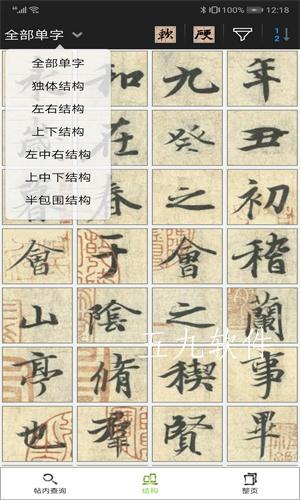 4G 100% 12:18
全部单字 軟 硬 1 2
全部单字
独体结构
左右结构
上下结构
左中右结构
上中下结构
半包围结构
永 和 九 年
歲 在 癸 丑
暮 春 之 初
會 于 會 稽
山 陰 之 蘭
亭 脩 稧 事
也 羣 賢 畢
五九软件
帖内查询 结构 整页